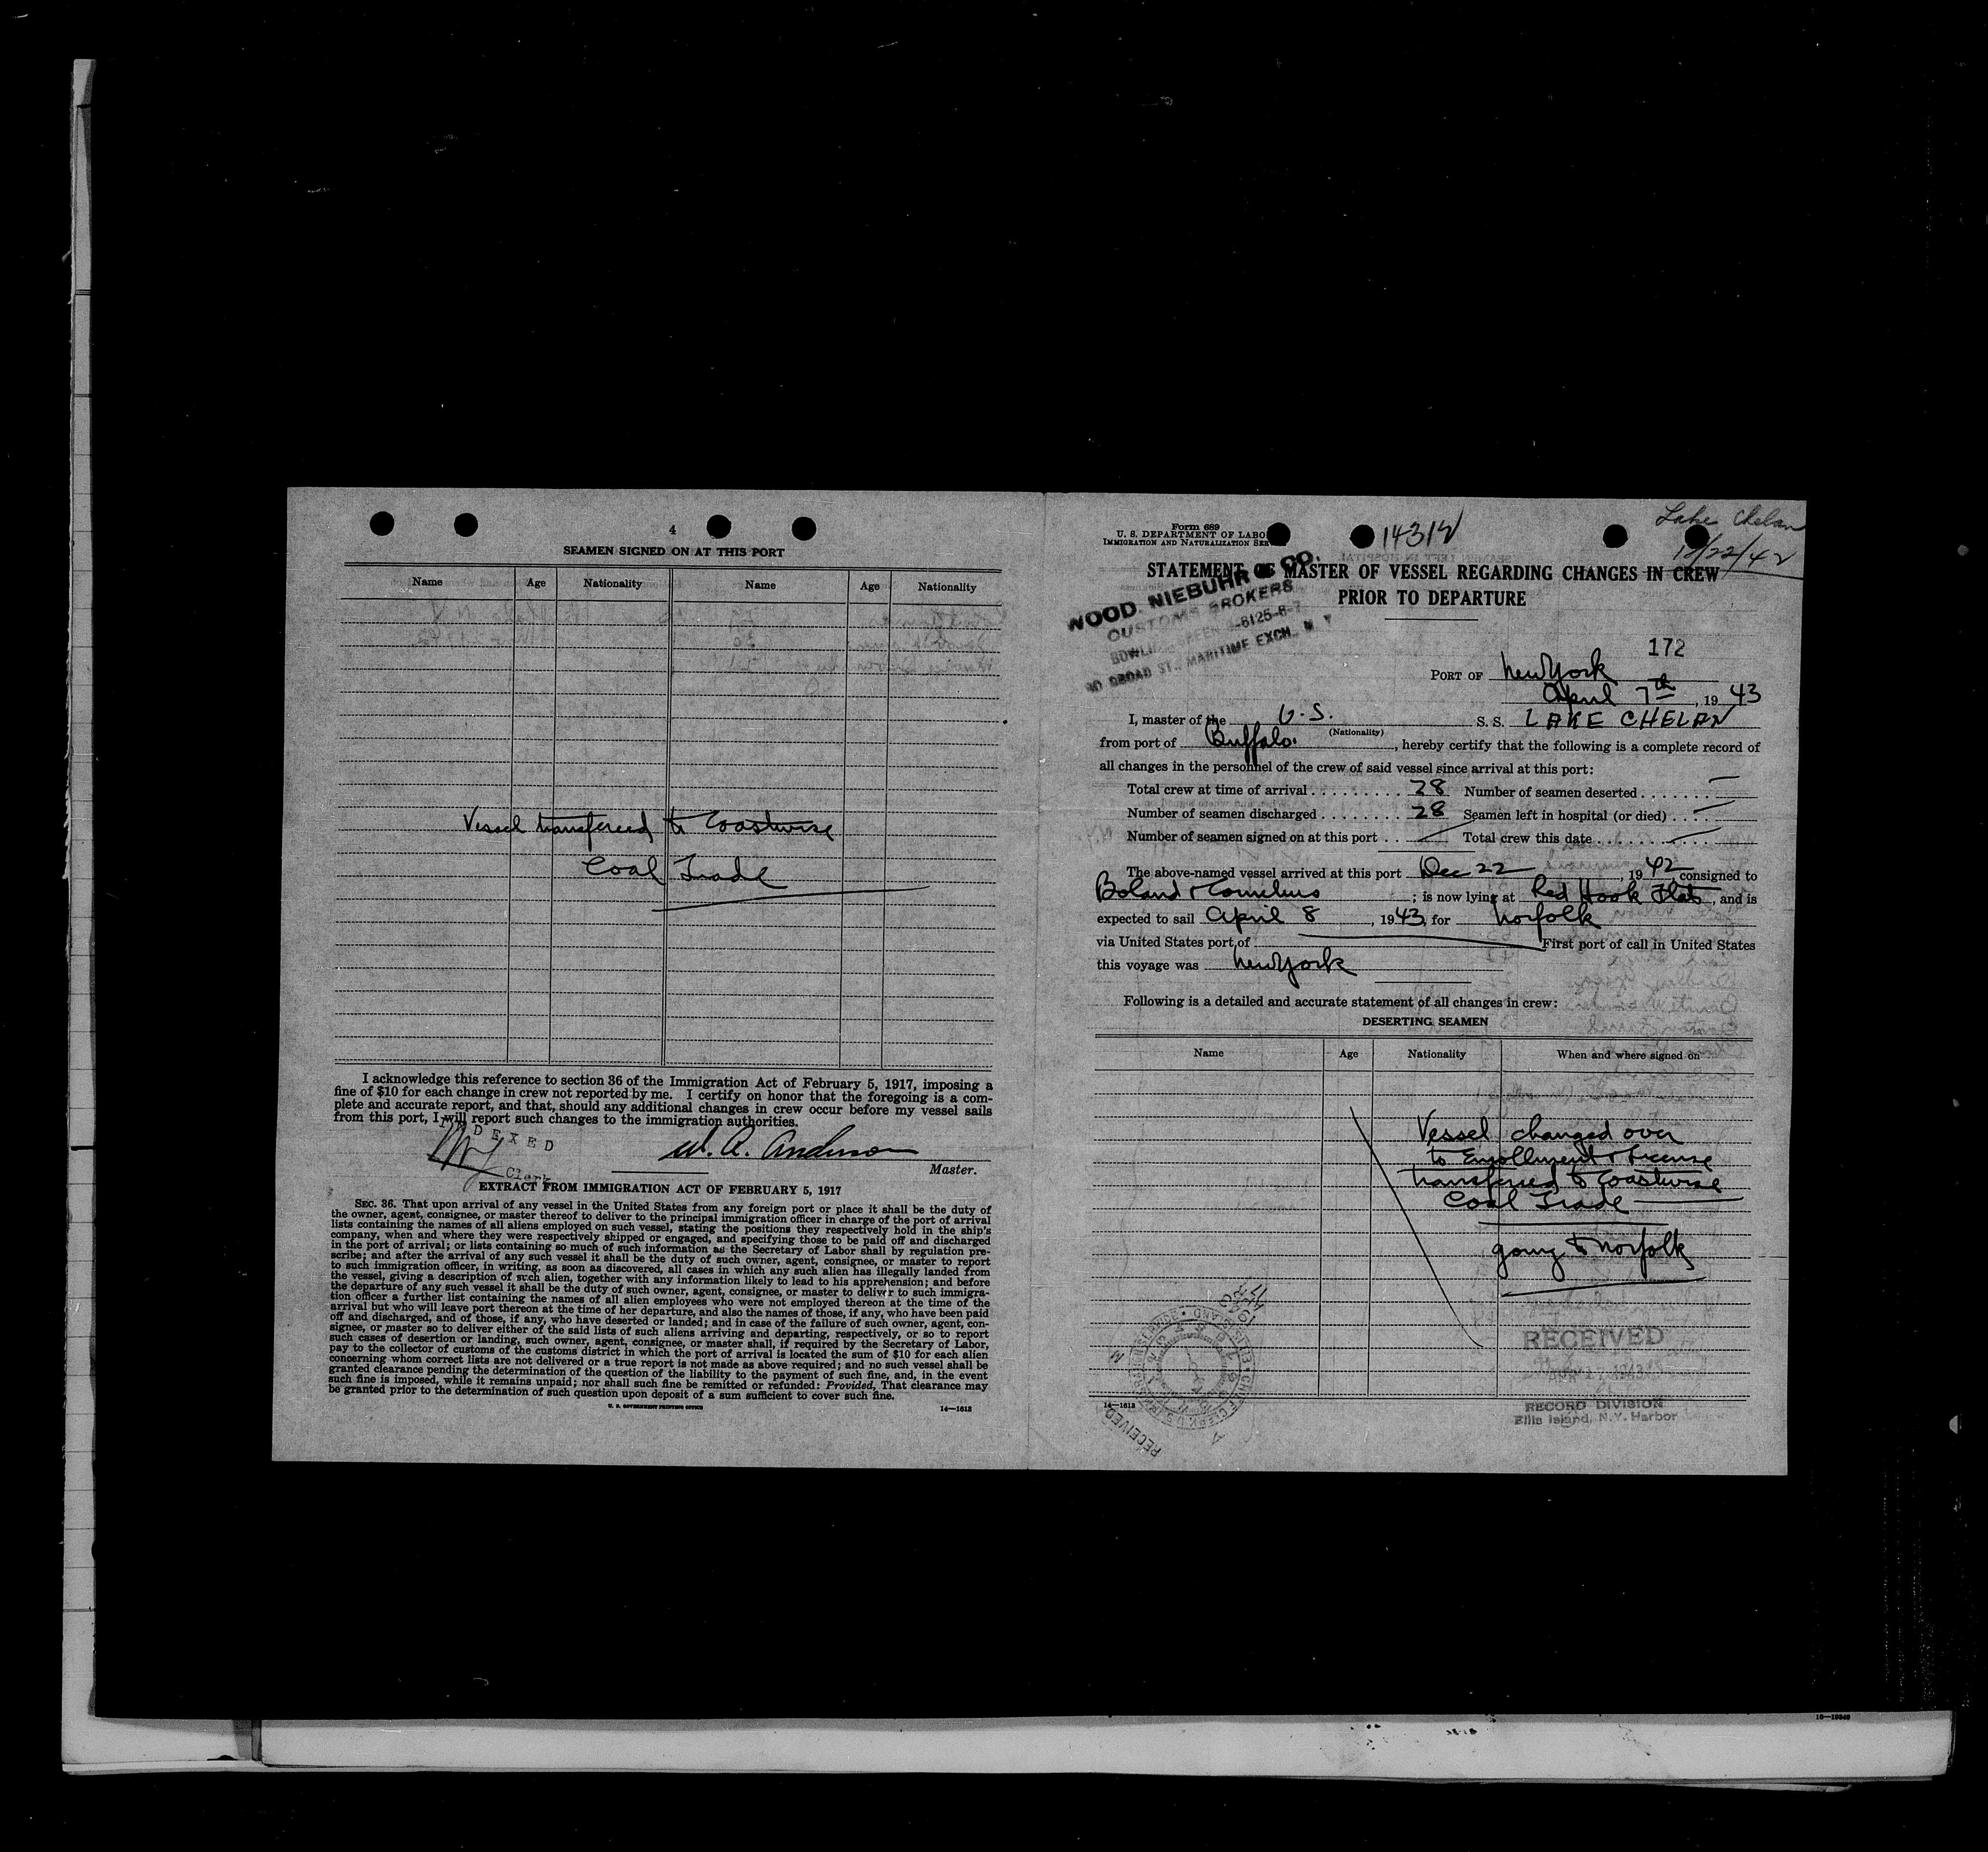 4
SEAMEN SIGNED ON AT THIS PORT
Name Age Nationality Name Age Nationality
Vessel transfereed to Coastwise
Coal Trade
I acknowledge this reference to section 36 of the Immigration Act of February 5, 1917, imposing a
fine of $10 for each change in crew not reported by me. I certify on honor that the foregoing is a com-
plete and accurate report, and that, should any additional changes in crew occur before my vessel sails
from this port, I will report such changes to the immigration authorities.
INDEXED
Clerk
W. A. Anderson
Master.
EXTRACT FROM IMMIGRATION ACT OF FEBRUARY 5, 1917
SEC. 36. That upon arrival of any vessel in the United States from any foreign port or place it shall be the duty of
the owner, agent, consignee, or master thereof to deliver to the principal immigration officer in charge of the port of arrival
lists containing the names of all aliens employed on such vessel, stating the positions they respectively hold in the ship's
company, when and where they were respectively shipped or engaged, and specifying those to be paid off and discharged
in the port of arrival; or lists containing so much of such information as the Secretary of Labor shall by regulation pre-
scribe; and after the arrival of any such vessel it shall be the duty of such owner, agent, consignee, or master to report
to such immigration officer, in writing, as soon as discovered, all cases in which any such alien has illegally landed from
the vessel, giving a description of such alien, together with any information likely to lead to his apprehension; and before
the departure of any such vessel it shall be the duty of such owner, agent, consignee, or master to deliver to such immigra-
tion officer a further list containing the names of all alien employees who were not employed thereon at the time of the
arrival but who will leave port thereon at the time of her departure, and also the names of those, if any, who have been paid
off and discharged, and of those, if any, who have deserted or landed; and in case of the failure of such owner, agent, con-
signee, or master so to deliver either of the said lists of such aliens arriving and departing, respectively, or so to report
such cases of desertion or landing, such owner, agent, consignee, or master shall, if required by the Secretary of Labor,
pay to the collector of customs of the customs district in which the port of arrival is located the sum of $10 for each alien
concerning whom correct lists are not delivered or a true report is not made as above required; and no such vessel shall be
granted clearance pending the determination of the question of the liability to the payment of such fine, and, in the event
such fine is imposed, while it remains unpaid; nor shall such fine be remitted or refunded: Provided, That clearance may
be granted prior to the determination of such question upon deposit of a sum sufficient to cover such fine.
U. S. GOVERNMENT PRINTING OFFICE 14—1613
Form 689
U. S. DEPARTMENT OF LABO
IMMIGRATION AND NATURALIZATION SER
Lake Chelan
12/22/42
STATEMENT OF MASTER OF VESSEL REGARDING CHANGES IN CREW
PRIOR TO DEPARTURE
WOOD, NIEBUHR & CO.
CUSTOMS BROKERS
BOWLING GREEN 9-6125-6-7
BROAD ST., MARITIME EXCH., N. Y.
172
PORT OF New York
April 7th, 1943
I, master of the U.S. S. S. LAKE CHELAN
(Nationality)
from port of Buffalo, hereby certify that the following is a complete record of
all changes in the personnel of the crew of said vessel since arrival at this port:
Total crew at time of arrival . . . . . . . . . 28 Number of seamen deserted . . . . . . . —
Number of seamen discharged . . . . . . . . 28 Seamen left in hospital (or died) . . . . —
Number of seamen signed on at this port . . — Total crew this date . . . . . . . —
The above-named vessel arrived at this port Dec 22, 1942 consigned to
Boland & Cornelius; is now lying at Red Hook Flats, and is
expected to sail April 8, 1943, for Norfolk
via United States port of — First port of call in United States
this voyage was New York
Following is a detailed and accurate statement of all changes in crew:
DESERTING SEAMEN
Name Age Nationality When and where signed on
Vessel changed over
to Enrollment & License
transfered to Coastwise
Coal Trade
going to Norfolk
RECEIVED
1943
RECORD DIVISION
Ellis Island, N.Y. Harbor
14—1613
RECEIVED
16—19349